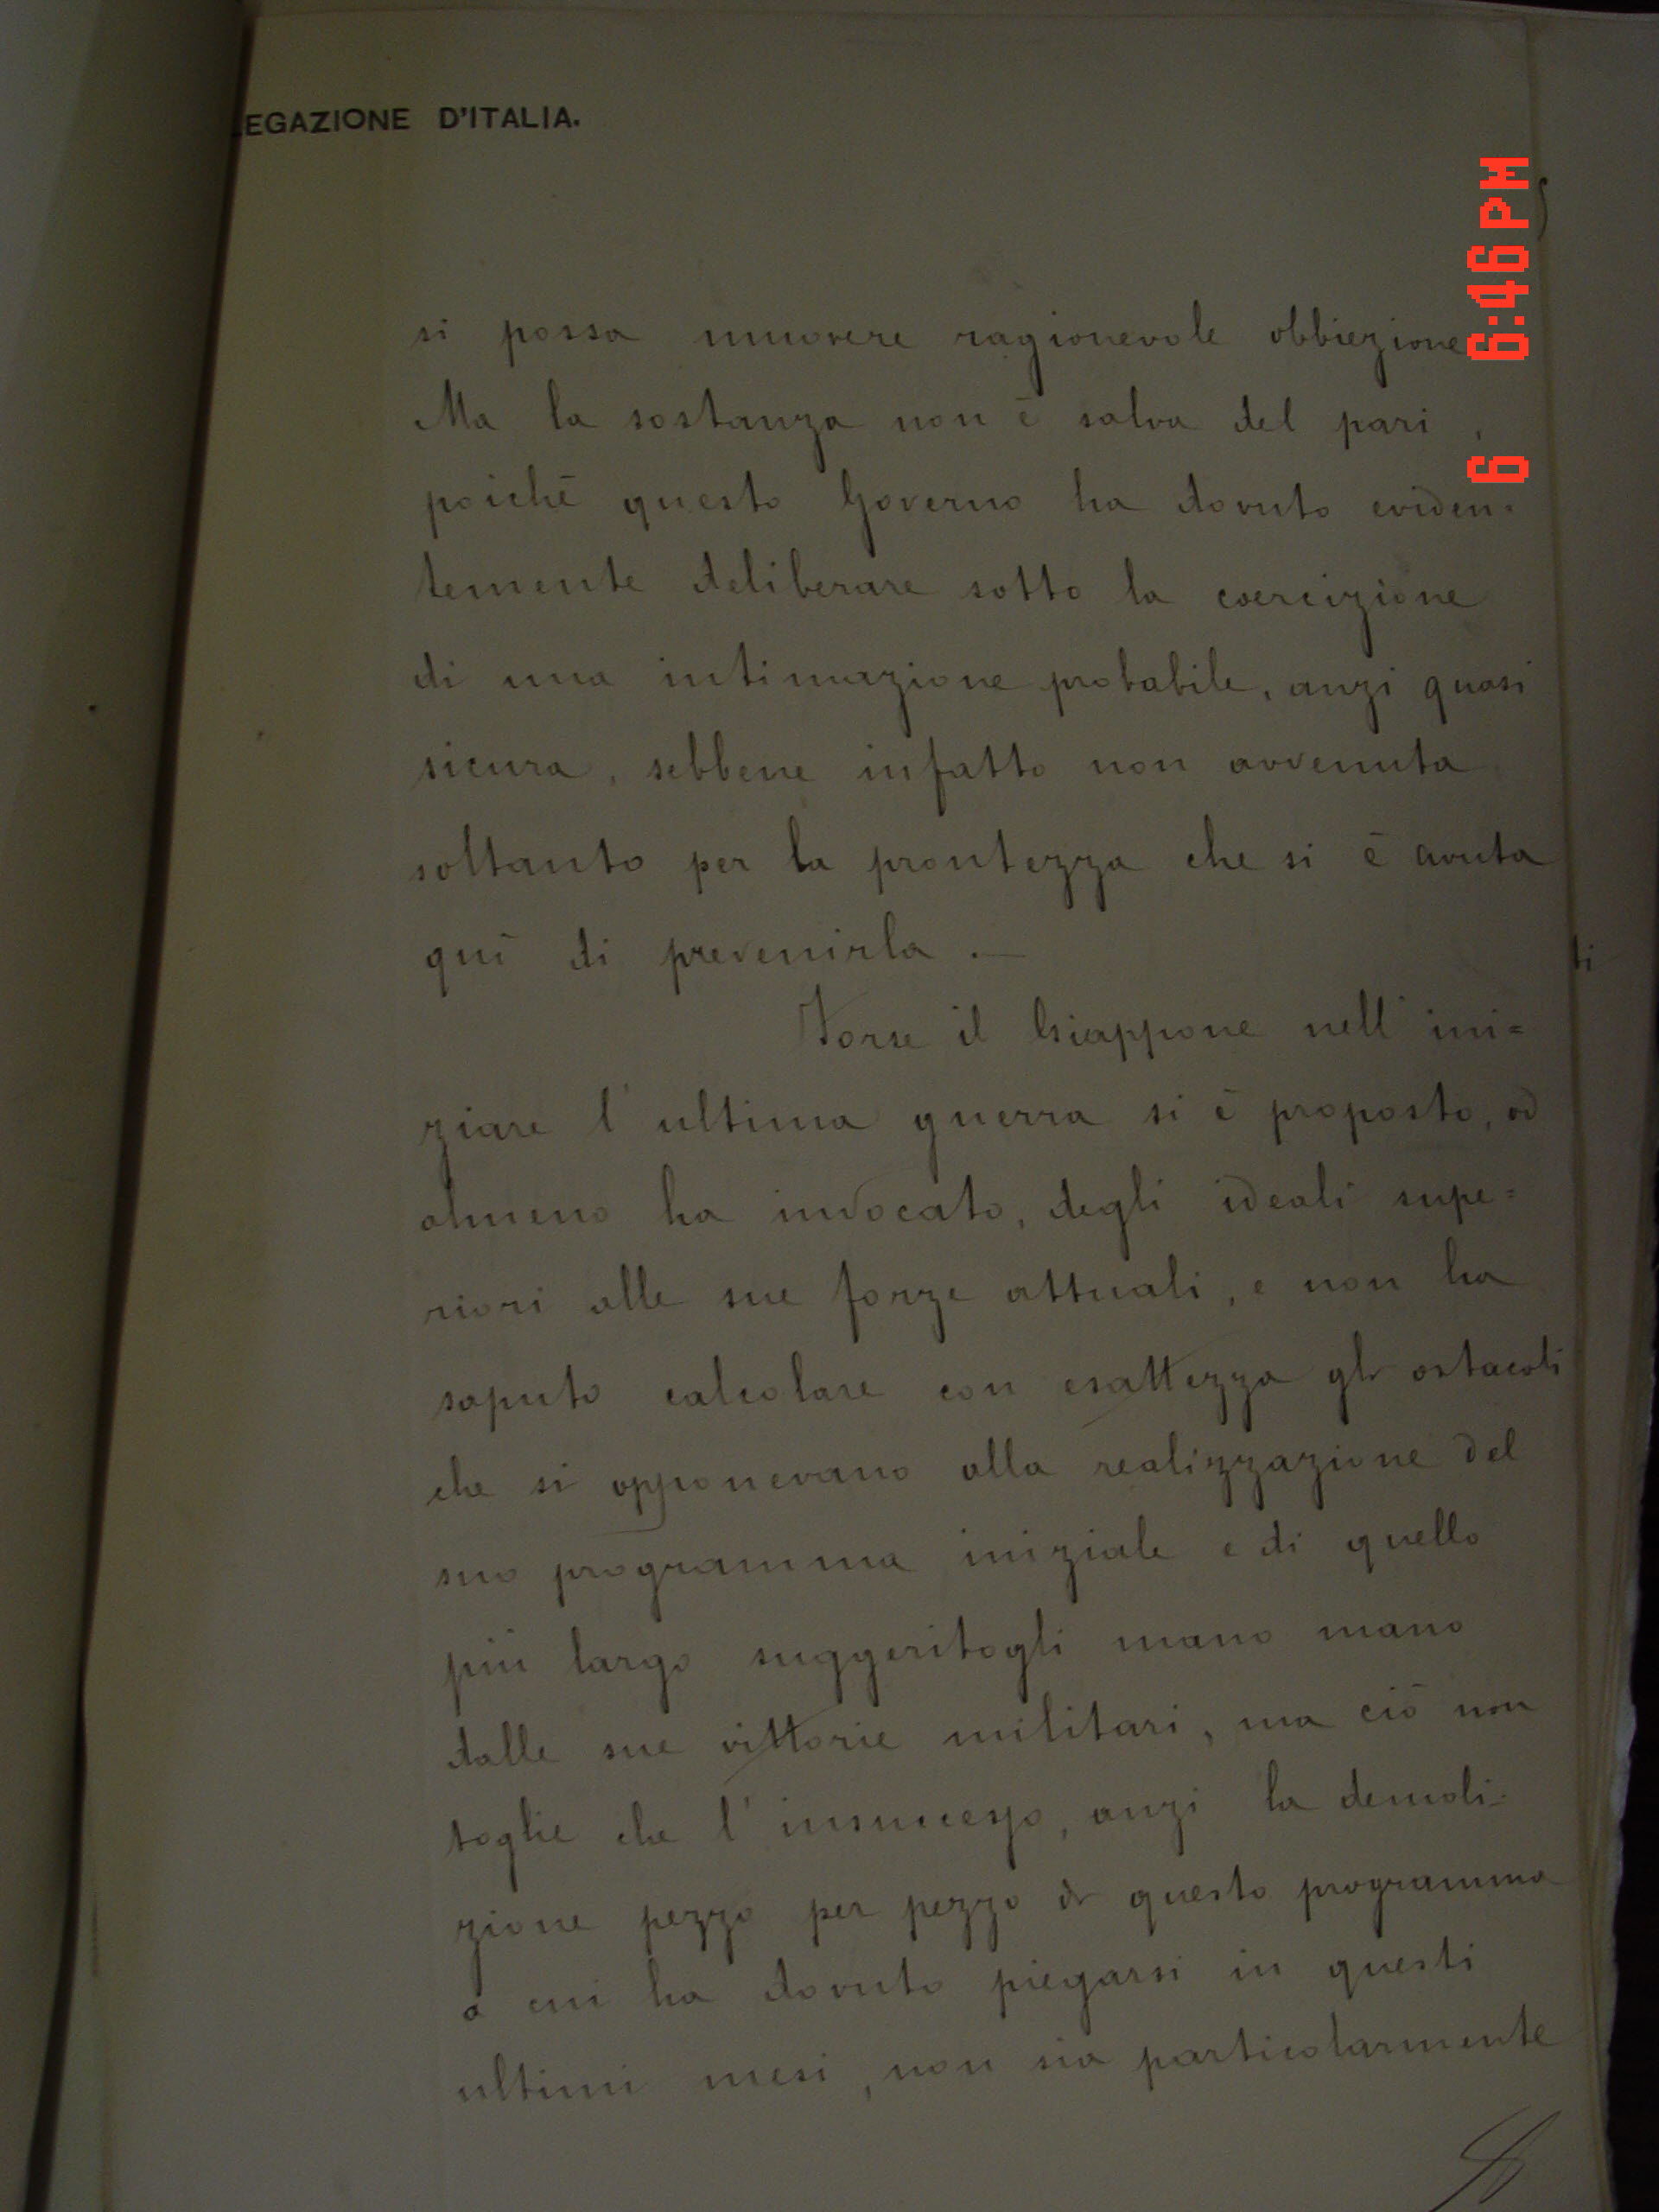 LEGAZIONE D'ITALIA.
6 6:46 PM
si possa muovere ragionevole obbiezione
Ma la sostanza non è salva del pari,
poichè questo Governo ha dovuto eviden=
temente deliberare sotto la coercizione
di una intimazione probabile, anzi quasi
sicura, sebbene infatto non avvenuta
soltanto per la prontezza che si è avuta
quì di prevenirla.—
Forse il Giappone nell'ini=
ziare l'ultima guerra si è proposto, od
almeno ha invocato, degli ideali supe=
riori alle sue forze attuali, e non ha
saputo calcolare con esattezza gli ostacoli
che si opponevano alla realizzazione del
suo programma iniziale e di quello
più largo suggeritogli mano mano
dalle sue vittorie militari, ma ciò non
toglie che l'insuccesso, anzi la demoli=
zione pezzo per pezzo di questo programma
a cui ha dovuto piegarsi in questi
ultimi mesi, non sia particolarmente
ti